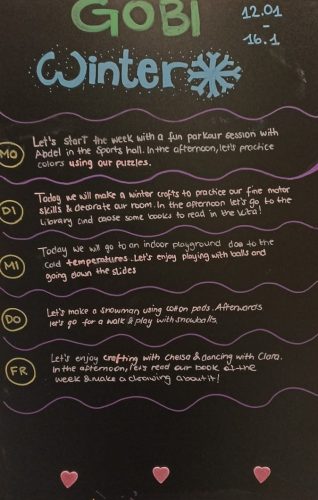 GOBI
12.01
-
16.1
Winter
MO
Let's start the week with a fun parkour session with
Abdel in the sports hall. In the afternoon, let's practice
colors using our puzzles.
DI
Today we will make a winter crafts to practice our fine motor
skills & decorate our room. In the afternoon let's go to the
library and choose some books to read in the kita!
MI
Today we will go to an indoor playground due to the
cold temperatures. Let's enjoy playing with balls and
going down the slides
DO
Let's make a snowman using cotton pads. Afterwards
let's go for a walk & play with snowballs.
FR
Let's enjoy crafting with Chelsa & dancing with Clara.
In the afternoon, let's read our book of the
week & make a drawing about it!